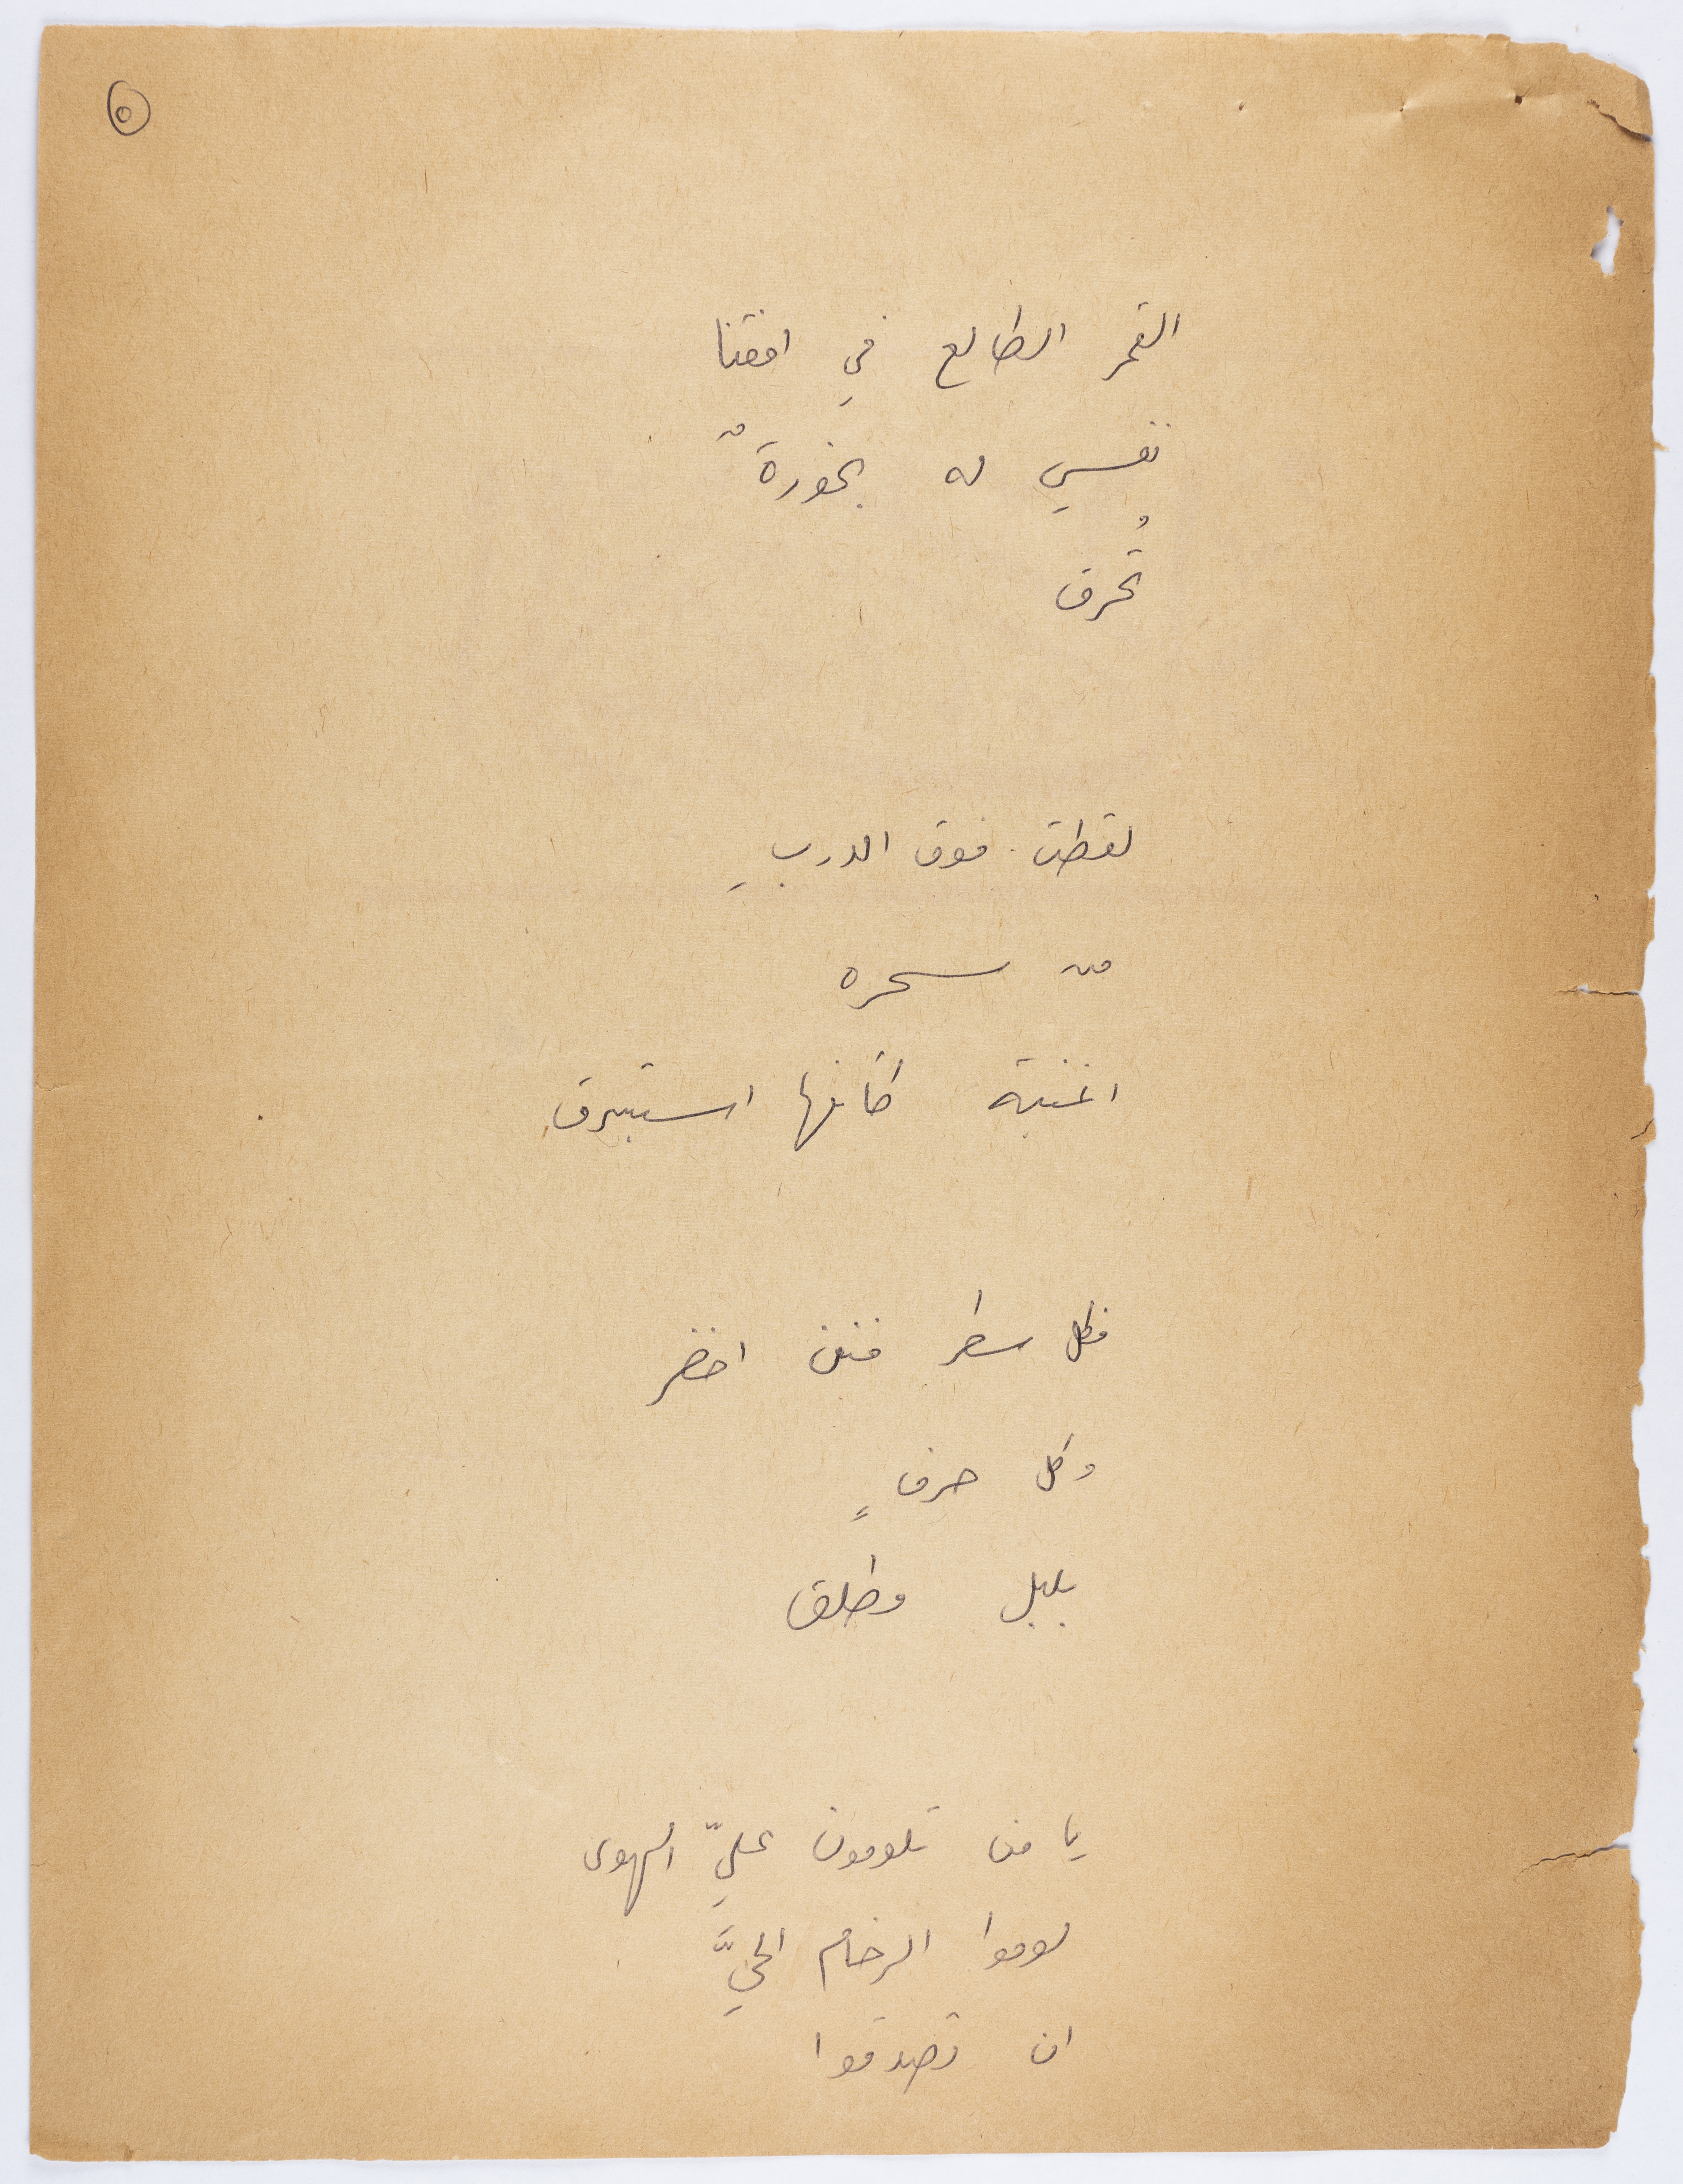 ٥
القمر الطالع في افقنا
نفسي له بخورةٌ
تُحرق
لقطت فوق الدربِ
من سحره
اغنية كأنها استبرق
فكل سطر فنن اخضر
وكل حرفٍ
بلبل مطلق
يا من تلومون عليّ الهوى
لوموا الرخام الحيَّ
ان تصدقوا